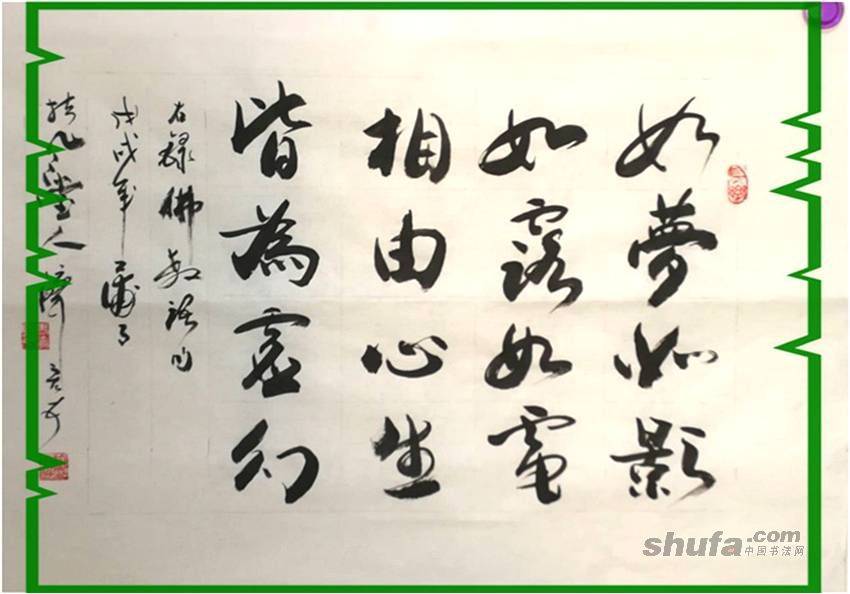 如夢如影
如露如電
相由心生
皆為虛幻
右錄佛教語句
戊戌年蒲月
shufa.com
中国书法网